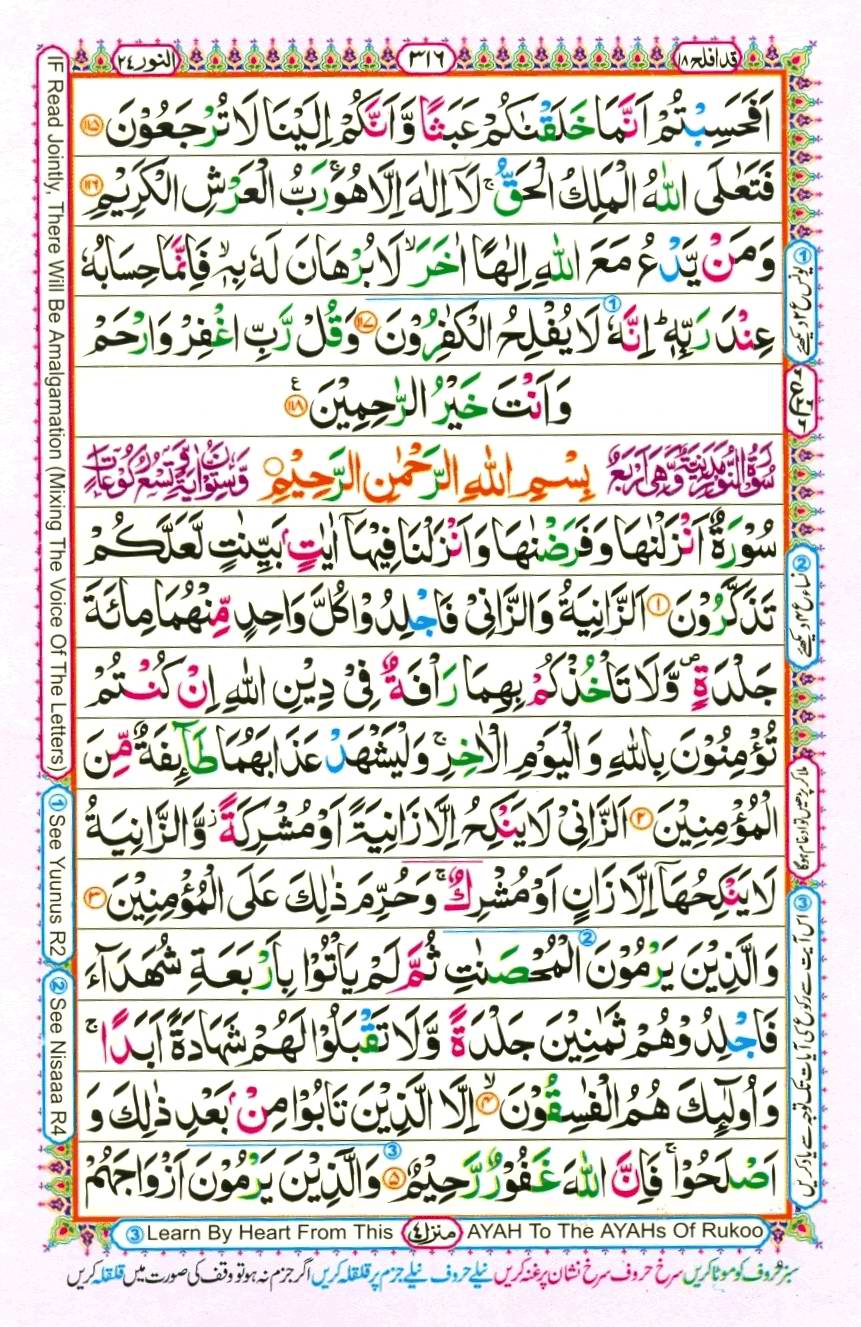 قد افلح ۱۸
۳۱۶
النور ۲۴
اَفَحَسِبْتُمْ اَنَّمَا خَلَقْنٰكُمْ عَبَثًا وَّاَنَّكُمْ اِلَیْنَا لَا تُرْجَعُوْنَ ۱۱۵
فَتَعٰلَی اللّٰهُ الْمَلِكُ الْحَقُّ ۚ لَاۤ اِلٰهَ اِلَّا هُوَ ۚ رَبُّ الْعَرْشِ الْكَرِیْمِ ۱۱۶
وَمَنْ یَّدْعُ مَعَ اللّٰهِ اِلٰهًا اٰخَرَ ۙ لَا بُرْهَانَ لَهٗ بِهٖ ۙ فَاِنَّمَا حِسَابُهٗ
عِنْدَ رَبِّهٖ ؕ اِنَّهٗ لَا یُفْلِحُ الْكٰفِرُوْنَ ۱۱۷ وَقُلْ رَّبِّ اغْفِرْ وَارْحَمْ
وَاَنْتَ خَیْرُ الرّٰحِمِیْنَ ۱۱۸ ع
سُوْرَةُ النُّوْرِ مَدَنِیَّةٌ وَّهِیَ اَرْبَعٌ بِسْمِ اللّٰهِ الرَّحْمٰنِ الرَّحِیْمِ وَّسِتُّوْنَ اٰیَةً وَّتِسْعُ رُكُوْعَاتٍ
سُوْرَةٌ اَنْزَلْنٰهَا وَفَرَضْنٰهَا وَاَنْزَلْنَا فِیْهَاۤ اٰیٰتٍۭ بَیِّنٰتٍ لَّعَلَّكُمْ
تَذَكَّرُوْنَ ۱ اَلزَّانِیَةُ وَالزَّانِیْ فَاجْلِدُوْا كُلَّ وَاحِدٍ مِّنْهُمَا مِائَةَ
جَلْدَةٍ ۪ وَّلَا تَاْخُذْكُمْ بِهِمَا رَاْفَةٌ فِیْ دِیْنِ اللّٰهِ اِنْ كُنْتُمْ
تُؤْمِنُوْنَ بِاللّٰهِ وَالْیَوْمِ الْاٰخِرِ ۚ وَلْیَشْهَدْ عَذَابَهُمَا طَآىِٕفَةٌ مِّنَ
الْمُؤْمِنِیْنَ ۲ اَلزَّانِیْ لَا یَنْكِحُ اِلَّا زَانِیَةً اَوْ مُشْرِكَةً ؗ وَّالزَّانِیَةُ
لَا یَنْكِحُهَاۤ اِلَّا زَانٍ اَوْ مُشْرِكٌ ۚ وَحُرِّمَ ذٰلِكَ عَلَی الْمُؤْمِنِیْنَ ۳
وَالَّذِیْنَ یَرْمُوْنَ الْمُحْصَنٰتِ ثُمَّ لَمْ یَاْتُوْا بِاَرْبَعَةِ شُهَدَآءَ
فَاجْلِدُوْهُمْ ثَمٰنِیْنَ جَلْدَةً وَّلَا تَقْبَلُوْا لَهُمْ شَهَادَةً اَبَدًا ۚ
وَاُولٰٓىِٕكَ هُمُ الْفٰسِقُوْنَ ۴ ۙ اِلَّا الَّذِیْنَ تَابُوْا مِنْۢ بَعْدِ ذٰلِكَ وَ
اَصْلَحُوْا ۚ فَاِنَّ اللّٰهَ غَفُوْرٌ رَّحِیْمٌ ۵ وَالَّذِیْنَ یَرْمُوْنَ اَزْوَاجَهُمْ
IF Read Jointly, There Will Be Amalgamation (Mixing The Voice Of The Letters)
① See Yuunus R2
② See Nisaaa R4
① یونس ع ۲ دیکھئے
② نساء ع ۴ دیکھئے
ملا کر پڑھیں تو ادغام ہوگا
③ اس آیت سے رکوع کی آیات تک توجہ سے یاد کریں
③ Learn By Heart From This منزل ۴ AYAH To The AYAHs Of Rukoo
سبز حروف کو موٹا کریں سرخ حروف سرخ نشان پر غنہ کریں نیلے حروف نیلے جزم پر قلقلہ کریں اگر جزم نہ ہو تو وقف کی صورت میں قلقلہ کریں